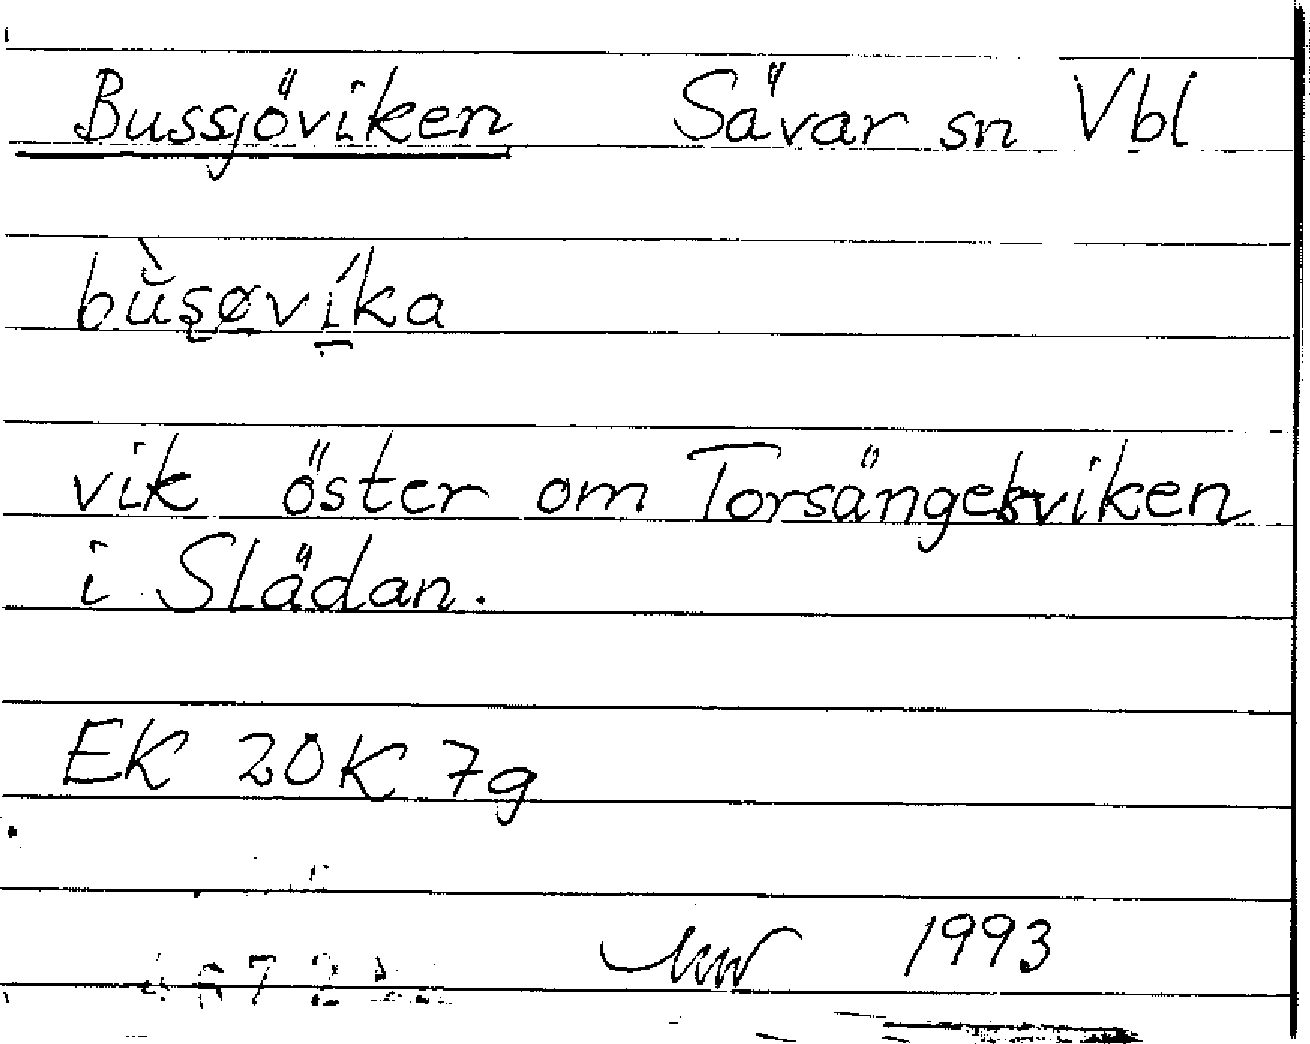 Bussjöviken Sävar sn Vbl
bùşøvíka
vik öster om Torsängesviken
i Slädan.
EK 20K 7g
1993